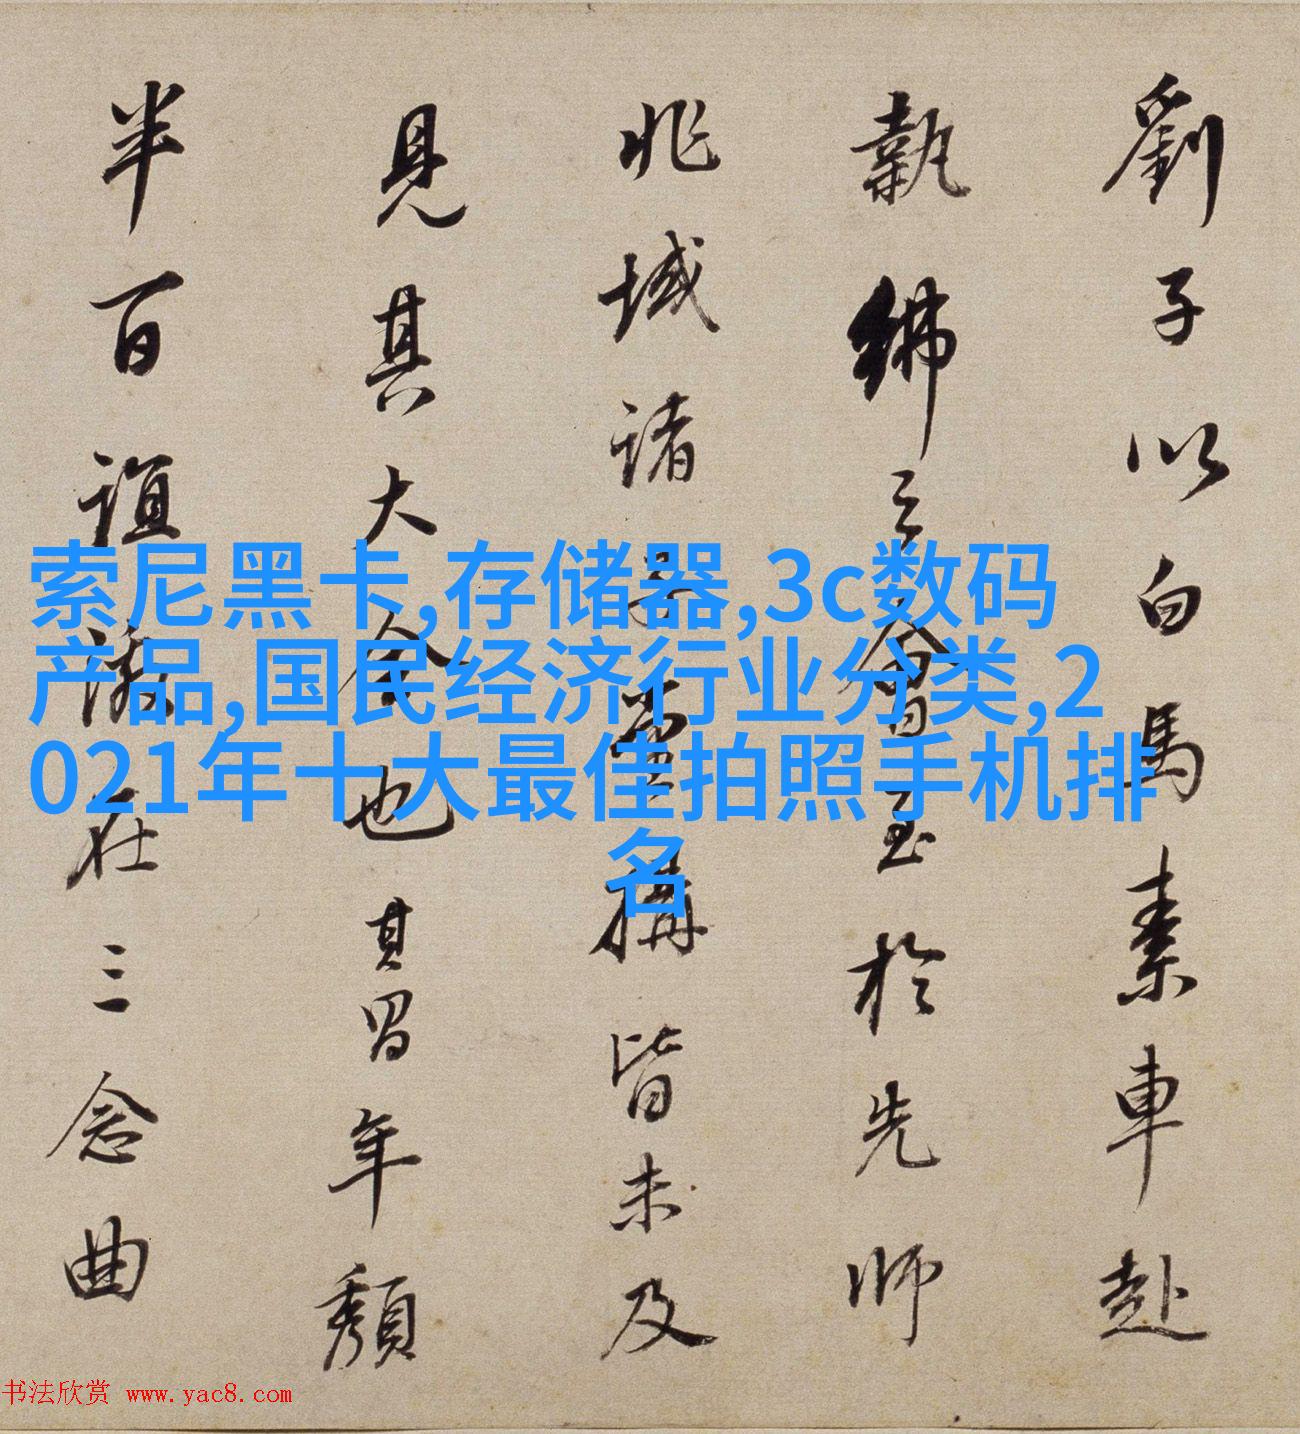 劉子以白馬素車赴
執紼之會至於先師
兆域諸子遺構皆未及
見其大全也其習年頹
半百誼激在三念曲
索尼黑卡,存储器,3c数码
产品,国民经济行业分类,2
021年十大最佳拍照手机排
名
书法欣赏 www.yac8.com